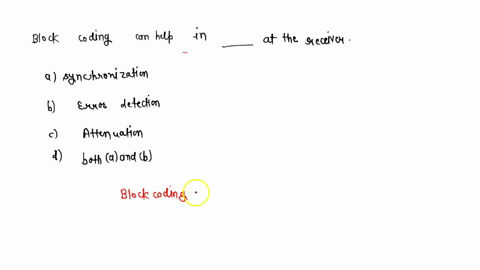 Block coding can help in ____ at the receiver.
a) synchronization
b) Error detection
c) Attenuation
d) both (a) and (b)
Block coding